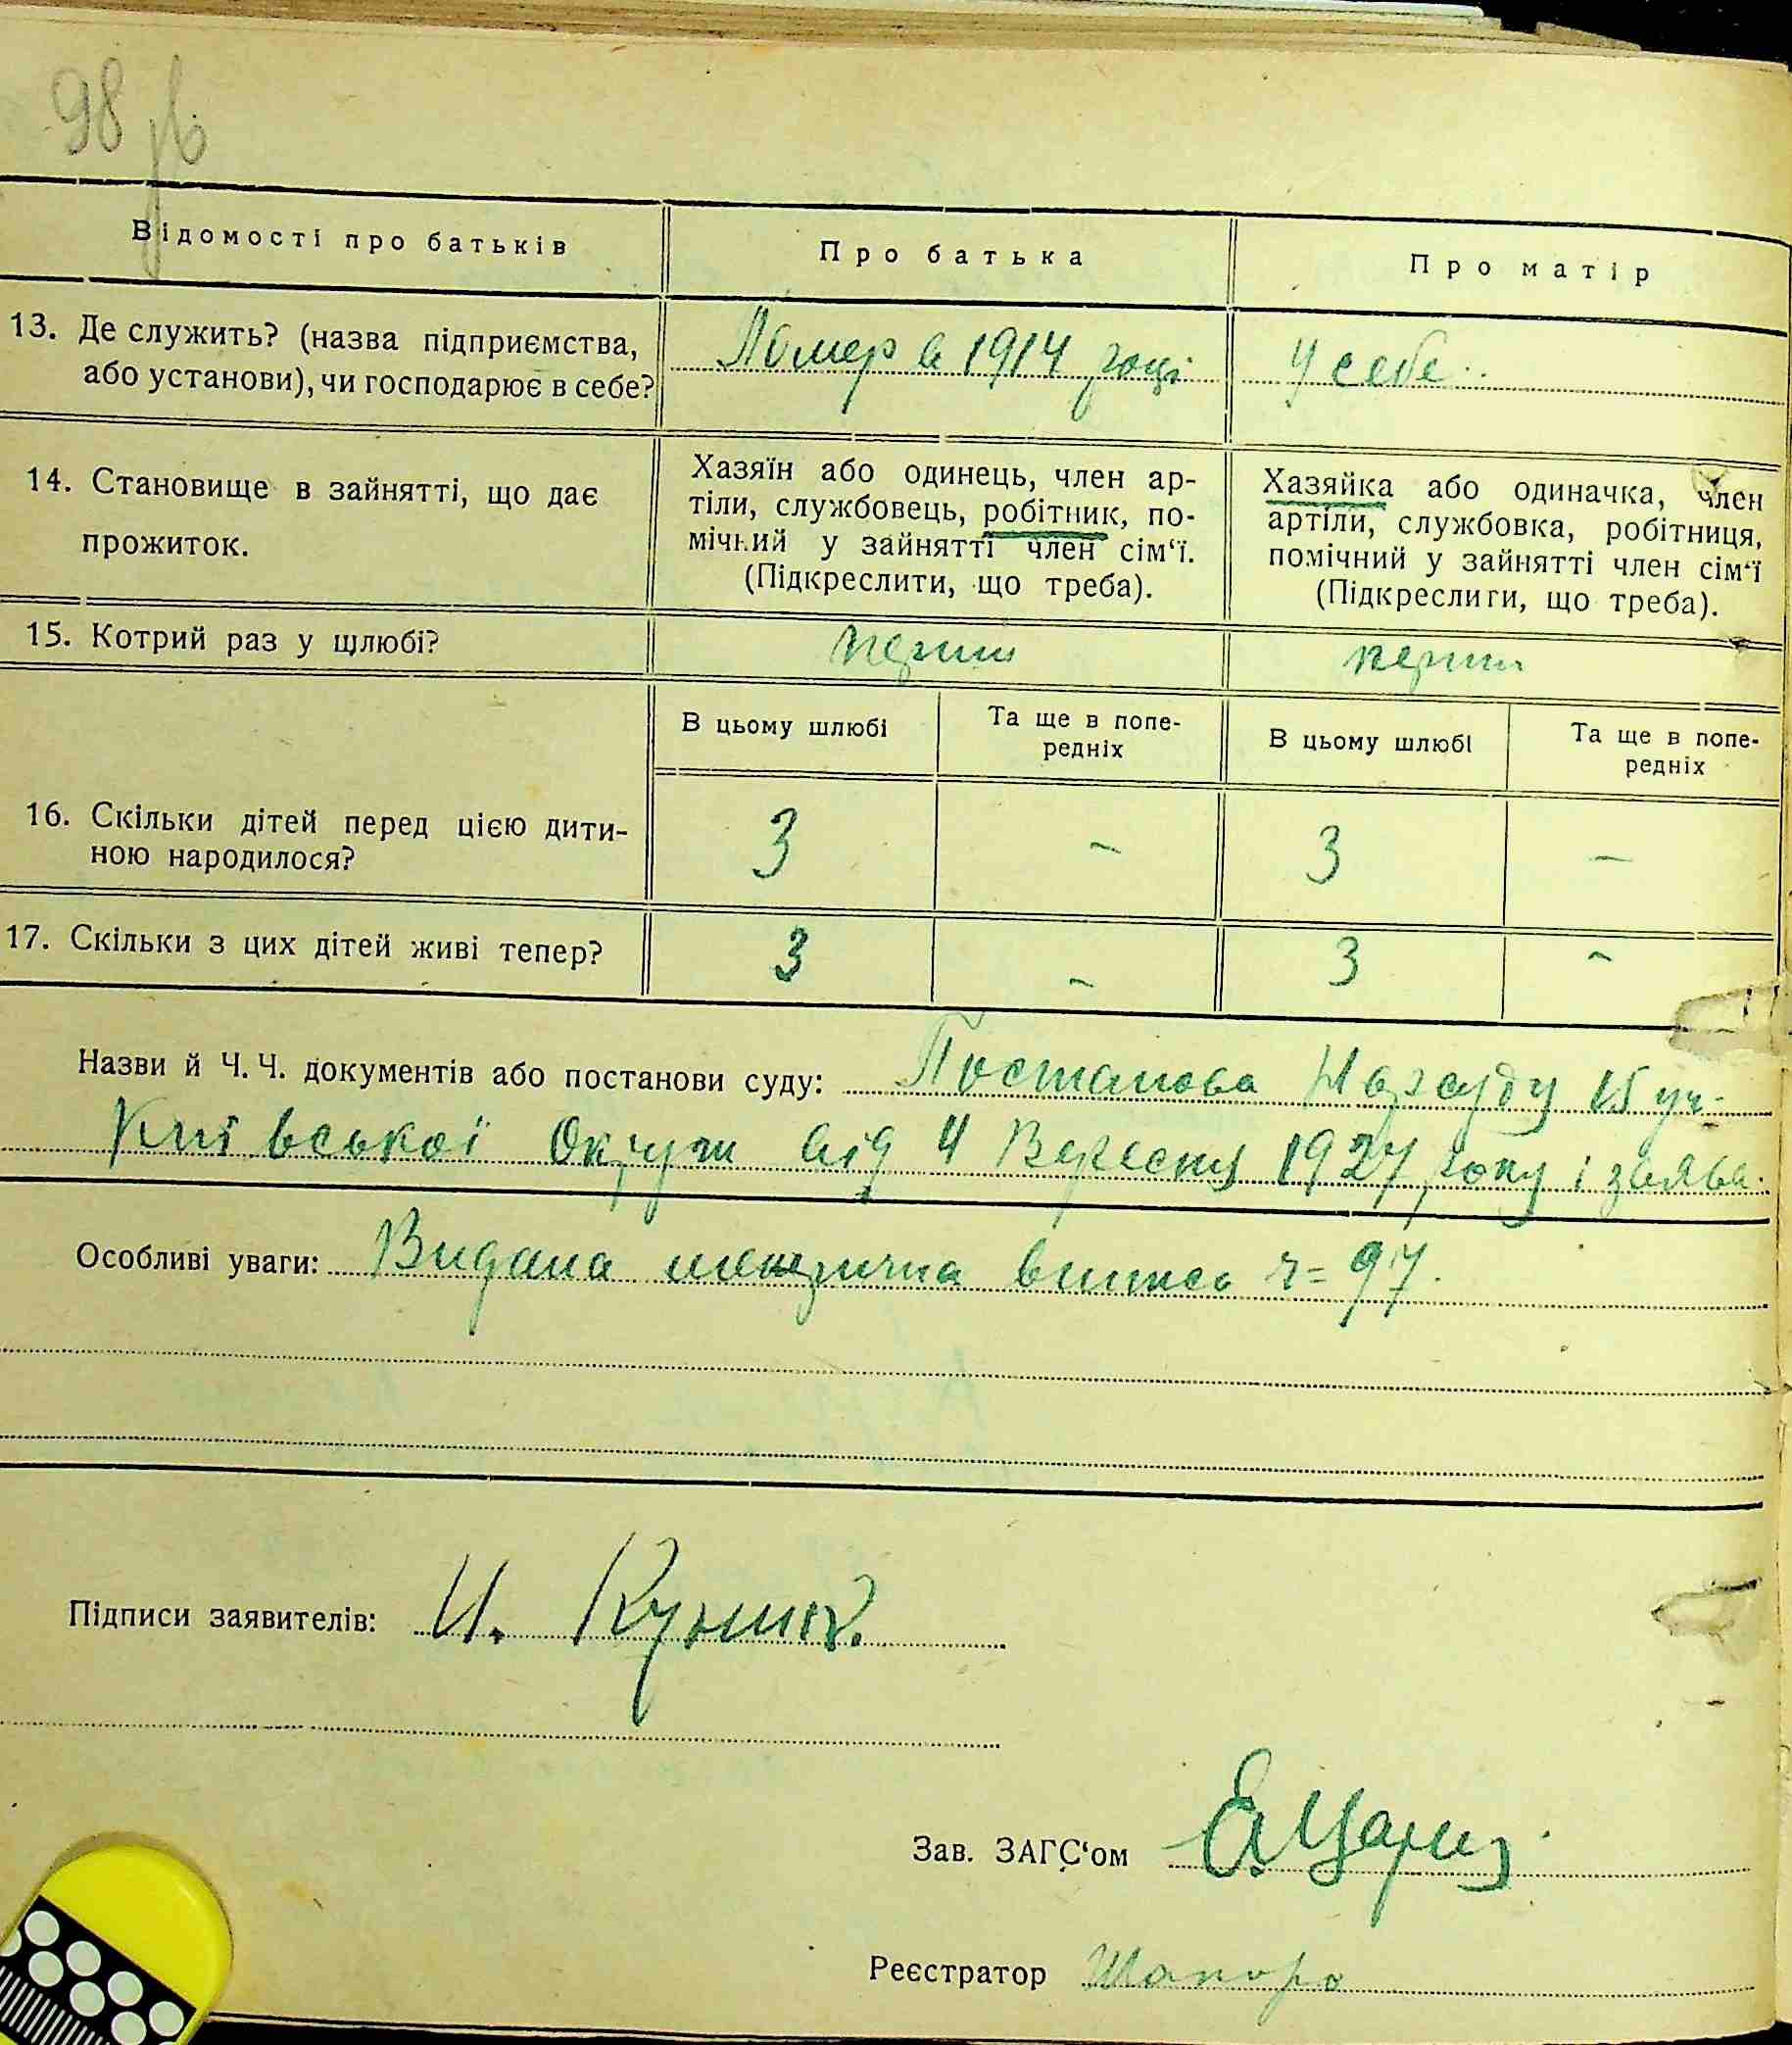 98 зв
Відомості про батьків
Про батька
Про матір
13. Де служить? (назва підприємства,
або установи), чи господарює в себе?
Помер в 1914 році
У себе
14. Становище в зайнятті, що дає
прожиток.
Хазяїн або одинець, член ар-
тіли, службовець, робітник, по-
мічний у зайнятті член сім'ї.
(Підкреслити, що треба).
Хазяйка або одиначка, член
артіли, службовка, робітниця,
помічний у зайнятті член сім'ї
(Підкреслити, що треба).
15. Котрий раз у шлюбі?
перший
перший
В цьому шлюбі
Та ще в попе-
редніх
В цьому шлюбі
Та ще в попе-
редніх
16. Скільки дітей перед цією дити-
ною народилося?
3 - 3 -
17. Скільки з цих дітей живі тепер?
3 - 3 -
Назви й Ч. Ч. документів або постанови суду: Постанова Нарсуду 15 уч-
Київської Округи від 4 Вересня 1927 року і заява.
Особливі уваги: Видана метрична випись ч= 97.
Підписи заявителів: И.
Зав. ЗАГС'ом
Реєстратор Шапоро